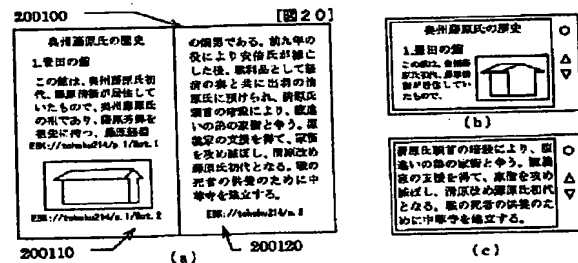 200100
[図20]
奥州藤原氏の歴史
1.豊田の館
この館は、奥州藤原氏初
代、藤原清衡が居住して
いたもので、奥州藤原氏
の祖であり、藤原秀郷を
祖先に持つ、藤原経清
EBK://tohoku214/p.1/Not.1
EBK://tohoku214/p.1/Not.2
200110
の嫡男である。前九年の
役により安倍氏が滅亡
した後、戦利品として経
清の妻と共に出羽の清
原氏に預けられ、清原氏
頭首の暗殺により、腹違
いの弟の家衡と争う。源
義家の支援を得て、家衡
を攻め滅ぼし、清原改め
藤原氏初代となる。戦の
死者の供養のために中
尊寺を建立する。
EBK://tohoku214/p.2
200120
(a)
奥州藤原氏の歴史
1.豊田の館
この館は、奥州藤
原氏初代、藤原清
衡が居住してい
たもので、
○
△
▽
(b)
清原氏頭首の暗殺により、腹
違いの弟の家衡と争う。源義
家の支援を得て、家衡を攻め
滅ぼし、清原改め藤原氏初代
となる。戦の死者の供養のた
めに中尊寺を建立する。
○
△
▽
(c)